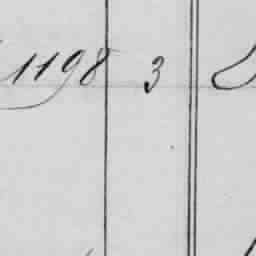 1198 3